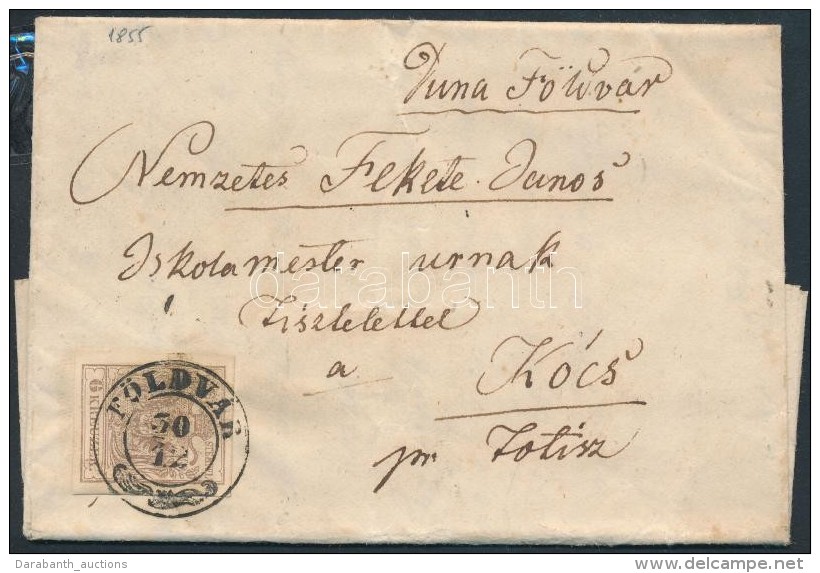 1855
Duna Földvár
Nemzetes Fekete János
Iskolamester urnak
Tisztelettel
a Kócs
pr Totisz
FÖLDVÁR
30
12
6 KREUZER
darabanth
Darabanth_auctions
delcampe.net